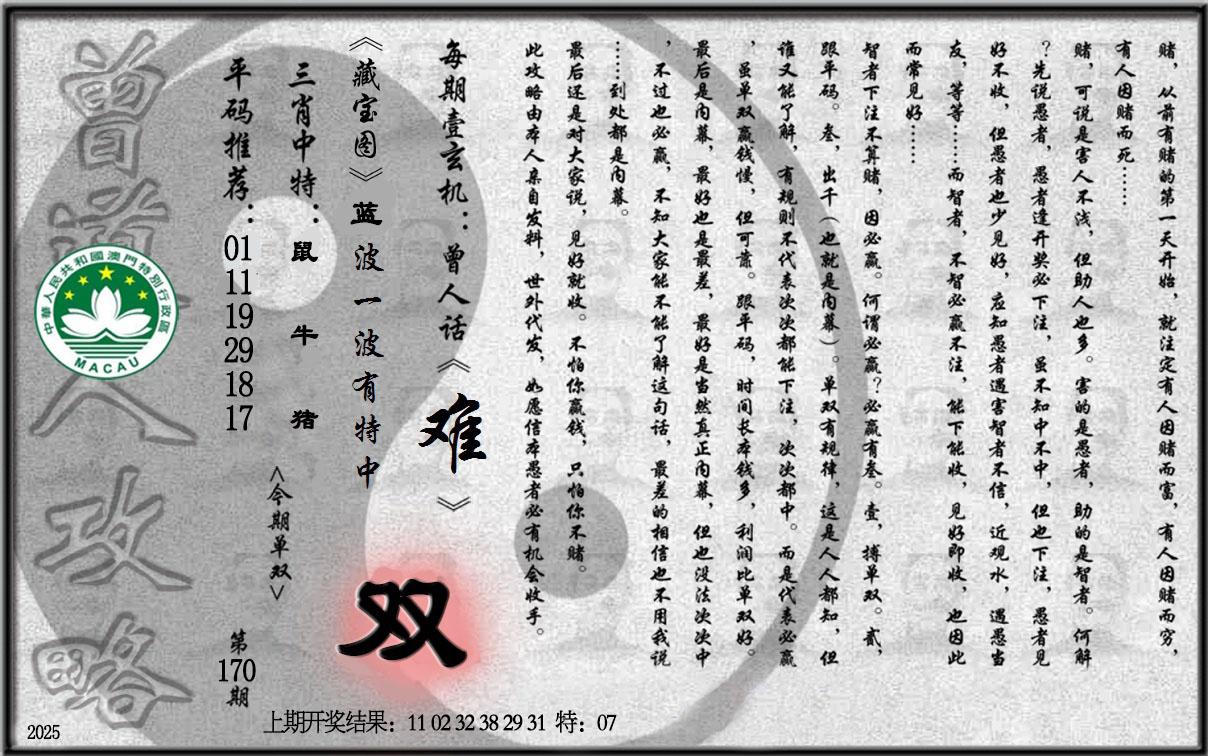 赌，从前有赌的第一天开始，就注定有人因赌而富，有人因赌而穷，
有人因赌而死……
赌，可说是害人不浅，但助人也多。害的是愚者，助的是智者。何解
？先说愚者，愚者逢开奖必下注，虽不知中不中，但也下注，愚者见
好不收，但愚者也少见好，应知愚者遇害智者不信，近观水，遇愚当
友，等等……而智者，不智必赢不注，能下能收，见好即收，也因此
而常见好……
智者下注不算赌，因必赢。何谓必赢？必赢有叁。壹，搏单双。贰，
跟平码。叁，出千（也就是内幕）。单双有规律，这是人人都知，但
谁又能了解，有规则不代表次次都能下注，次次都中。而是代表必赢
，虽单双赢钱慢，但可靠。跟平码，时间长本钱多，利润比单双好。
最后是内幕，最好也是最差，最好是当然真正内幕，但也没法次次中
，不过也必赢，不知大家能不能了解这句话，最差的相信也不用我说
……到处都是内幕。
最后还是对大家说，见好就收。不怕你赢钱，只怕你不赌。
此攻略由本人亲自发料，世外代发，如愿信本愚者必有机会收手。
每期壹玄机：曾人话《难》
《藏宝图》蓝波一波有特中
双
三肖中特：鼠牛猪
<今期单双>
平码推荐：01 11 19 29 18 17
第170期
曾道人攻略
中華人民共和國澳門特別行政區
MACAU
上期开奖结果：11 02 32 38 29 31 特：07
2025